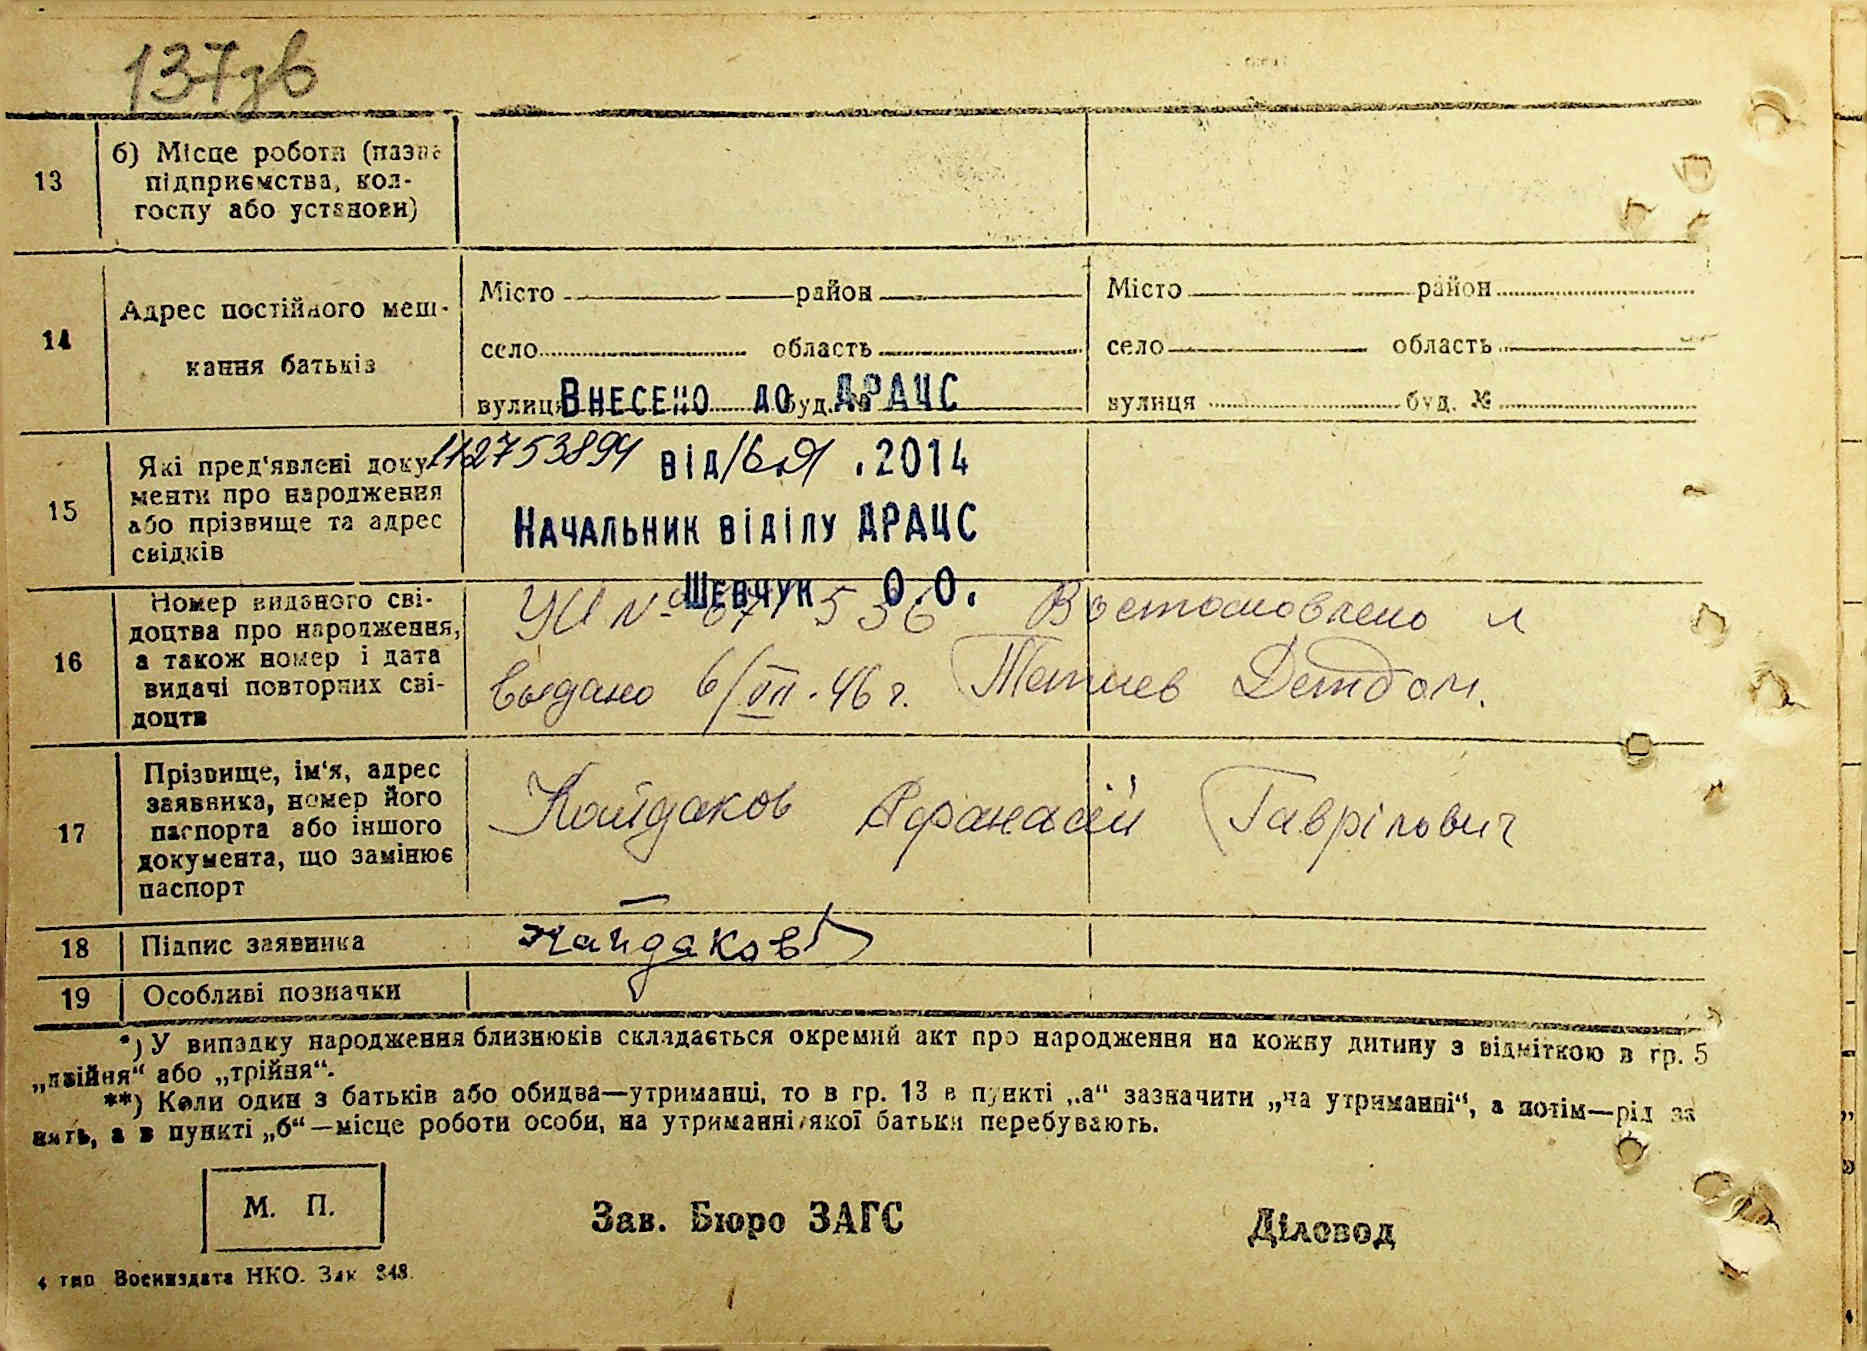 137зв
13
б) Місце роботи (назва
підприємства, кол-
госпу або установи)
14
Адрес постійного меш-
кання батьків
Місто район
село область
вулиця буд. №
Місто район
село область
вулиця буд. №
Внесено до ДРАЦС
15
Які пред'явлені доку-
менти про народження
або прізвище та адрес
свідків
від 16.01.2014
Начальник віділу ДРАЦС
Шевчук О.О.
16
Номер виданого сві-
доцтва про народження,
а також номер і дата
видачі повторних сві-
доцтв
Востановлено
выдано 6/VII.46 г. Детдом.
17
Прізвище, ім'я, адрес
заявника, номер його
паспорта або іншого
документа, що замінює
паспорт
Кайдаков Афанасій Гаврілович
18
Підпис заявника
Кайдаков
19
Особливі позначки
*) У випадку народження близнюків складається окремий акт про народження на кожну дитину з відміткою в гр. 5
„двійня“ або „трійня“.
**) Коли один з батьків або обидва—утриманці, то в гр. 13 в пункті „а“ зазначити „на утриманні“, а потім—рід за
нять, а в пункті „б“—місце роботи особи, на утриманні якої батьки перебувають.
М. П.
Зав. Бюро ЗАГС
Діловод
4 тип Воениздата НКО. Зак 348.